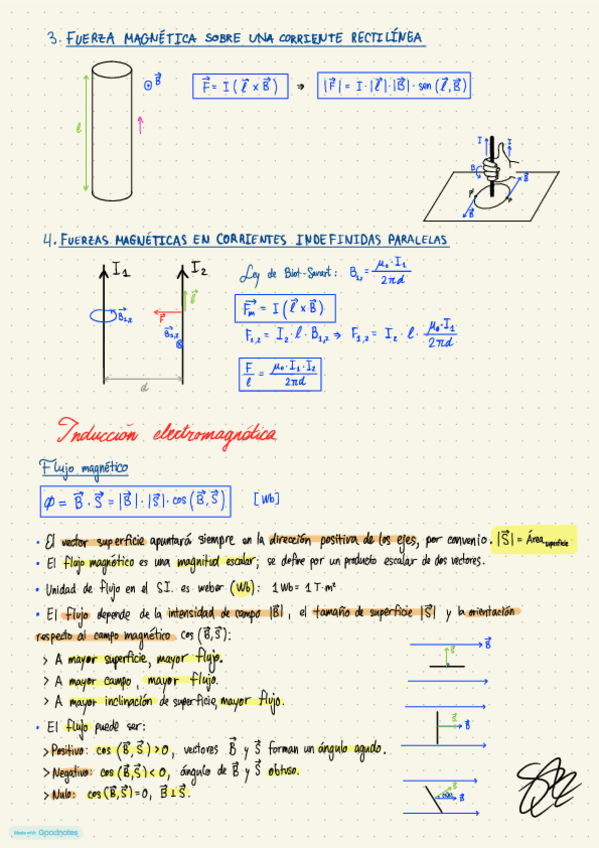 3. FUERZA MAGNÉTICA SOBRE UNA CORRIENTE RECTILÍNEA
l
B⃗
F⃗ = I (l⃗ x B⃗) → |F⃗| = I · |l⃗| · |B⃗| · sen (l⃗, B⃗)
I I
B
B⃗
B⃗
4. FUERZAS MAGNÉTICAS EN CORRIENTES INDEFINIDAS PARALELAS
I₁ I₂
B⃗₁,₂
F⃗
l⃗
B⃗₁,₂
d
Ley de Biot-Savart: B₁,₂ = μ₀·I₁ / 2πd
F⃗ₘ = I (l⃗ x B⃗)
F₁,₂ = I₂ · l · B₁,₂ ⇒ F₁,₂ = I₂ · l · μ₀·I₁ / 2πd
F / l = μ₀·I₁·I₂ / 2πd
Inducción electromagnética
Flujo magnético
Φ = B⃗ · S⃗ = |B⃗| · |S⃗| · cos (B⃗, S⃗) [Wb]
• El vector superficie apuntará siempre en la dirección positiva de los ejes, por convenio. |S⃗| = Área superficie
• El flujo magnético es una magnitud escalar; se define por un producto escalar de dos vectores.
• Unidad de flujo en el S.I. es weber (Wb): 1 Wb = 1 T·m²
• El flujo depende de la intensidad de campo |B⃗|, el tamaño de superficie |S⃗| y la orientación
respecto al campo magnético cos (B⃗, S⃗):
> A mayor superficie, mayor flujo.
> A mayor campo, mayor flujo.
> A mayor inclinación de superficie, mayor flujo.
• El flujo puede ser:
> Positivo: cos (B⃗, S⃗) > 0, vectores B⃗ y S⃗ forman un ángulo agudo.
> Negativo: cos (B⃗, S⃗) < 0, ángulo de B⃗ y S⃗ obtuso.
> Nulo: cos (B⃗, S⃗) = 0, B⃗ ⊥ S⃗.
B⃗
S⃗
S⃗
B⃗
S⃗
B⃗
Made with Goodnotes